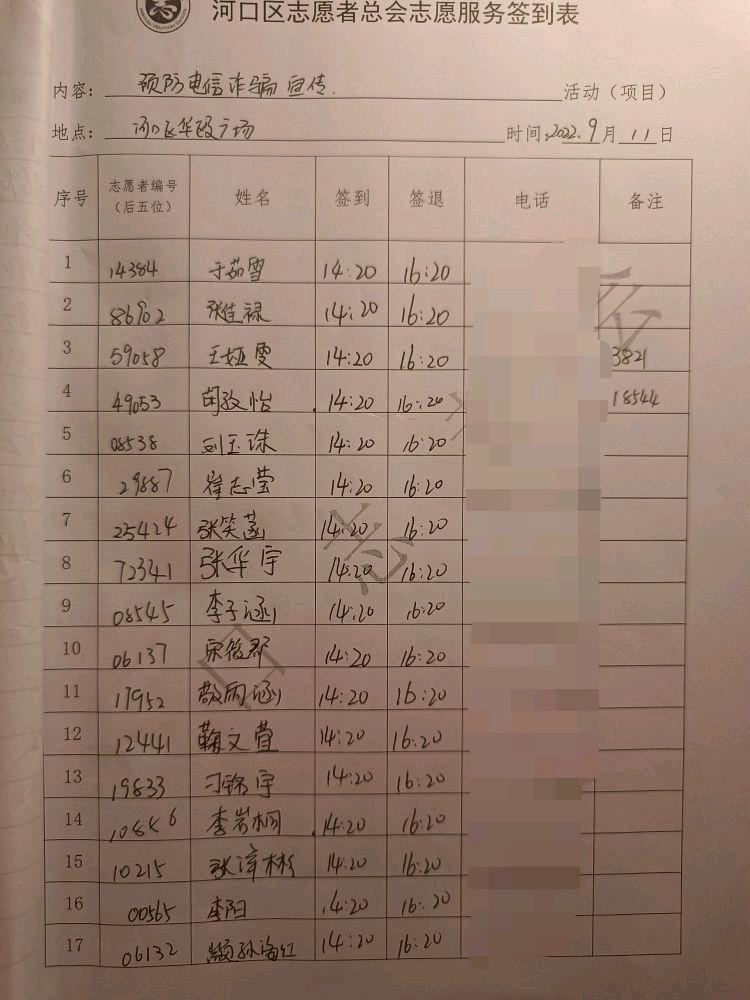 河口区志愿者总会志愿服务签到表
内容： 预防电信诈骗宣传. 活动（项目）
地点： 河口区华段广场 时间：2022.9月11日
序号 志愿者编号（后五位） 姓名 签到 签退 电话 备注
1 14384 于茹雪 14:20 16:20
2 86902 张佳禄 14:20 16:20
3 59058 王娅雯 14:20 16:20 3821
4 49053 14:20 16:20 18544
5 08538 刘玉洙 14:20 16:20
6 29887 崔志莹 14:20 16:20
7 25424 张笑菡 14:20 16:20
8 72341 张华宇 14:20 16:20
9 08545 李子涵 14:20 16:20
10 06137 14:20 16:20
11 17952 14:20 16:20
12 12441 鞠文萱 14:20 16:20
13 19833 刁锦宇 14:20 16:20
14 李岩桐 14:20 16:20
15 10215 张淳彬 14:20 16:20
16 00565 李阳 14:20 16:20
17 06132 颛孙海红 14:20 16:20